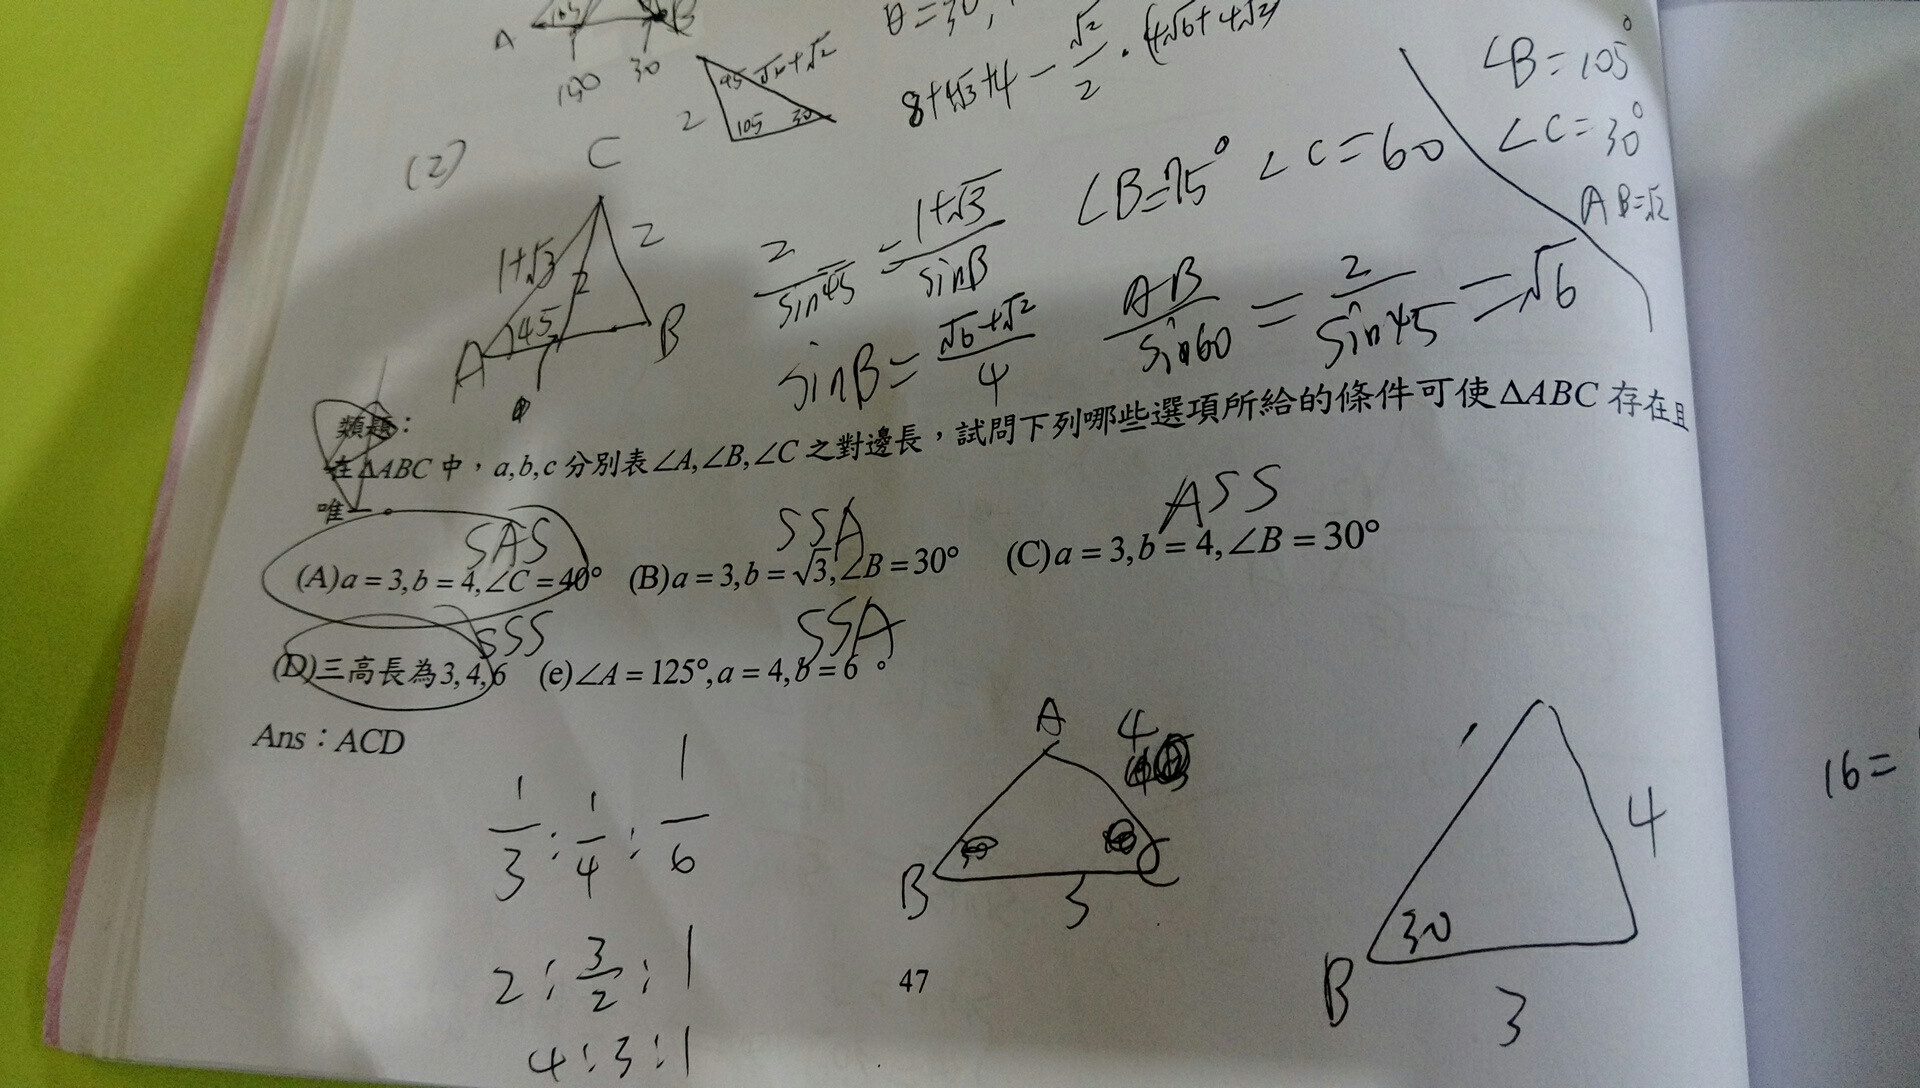 A 105 B
150 30
45 √6+√2
2 105 30
θ=30,
8+4√3+4-√2/2·(4√6+4√2)
∠B=105°
∠C=30°
AB=√2
(2)
C
1+√3 2 2
A 45 B
2/sin45=1+√3/sinB
∠B=75° ∠C=60
sinB=√6+√2/4
AB/sin60=2/sin45=√6
類題:
在ΔABC中,a,b,c分別表∠A,∠B,∠C之對邊長,試問下列哪些選項所給的條件可使ΔABC存在且
唯一。
SAS SSA ASS
(A)a=3,b=4,∠C=40° (B)a=3,b=√3,∠B=30° (C)a=3,b=4,∠B=30°
SSS SSA
(D)三高長為3,4,6 (e)∠A=125°,a=4,b=6。
Ans:ACD
1/3:1/4:1/6
2:3/2:1
4:3:1
A 4
B 3 C
4
30
B 3
16=
47